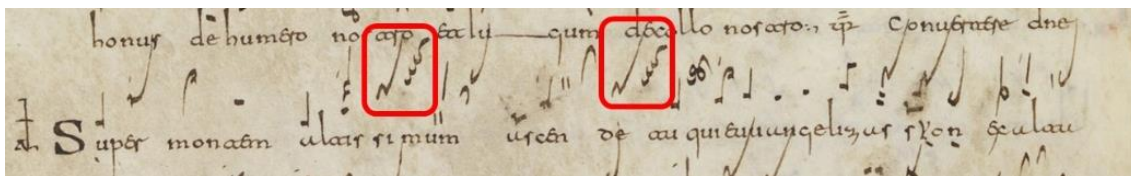 honus de humero no stro de collo nostro Convertere dne
Super montem altis simum ascen de tu qui euuangelizas syon exulta